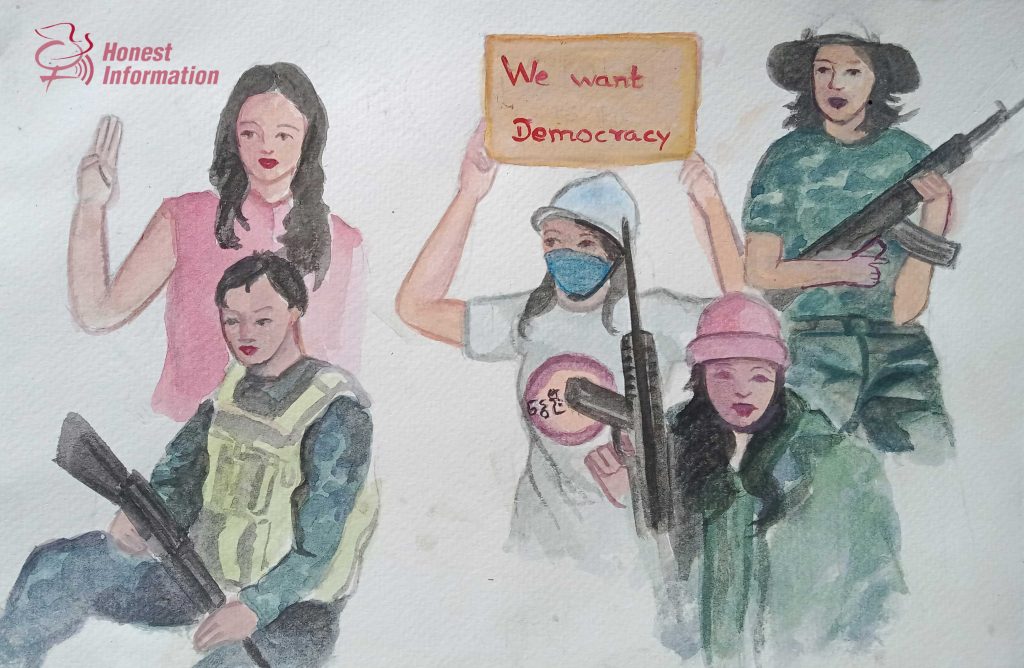 Honest
Information
We want
Democracy